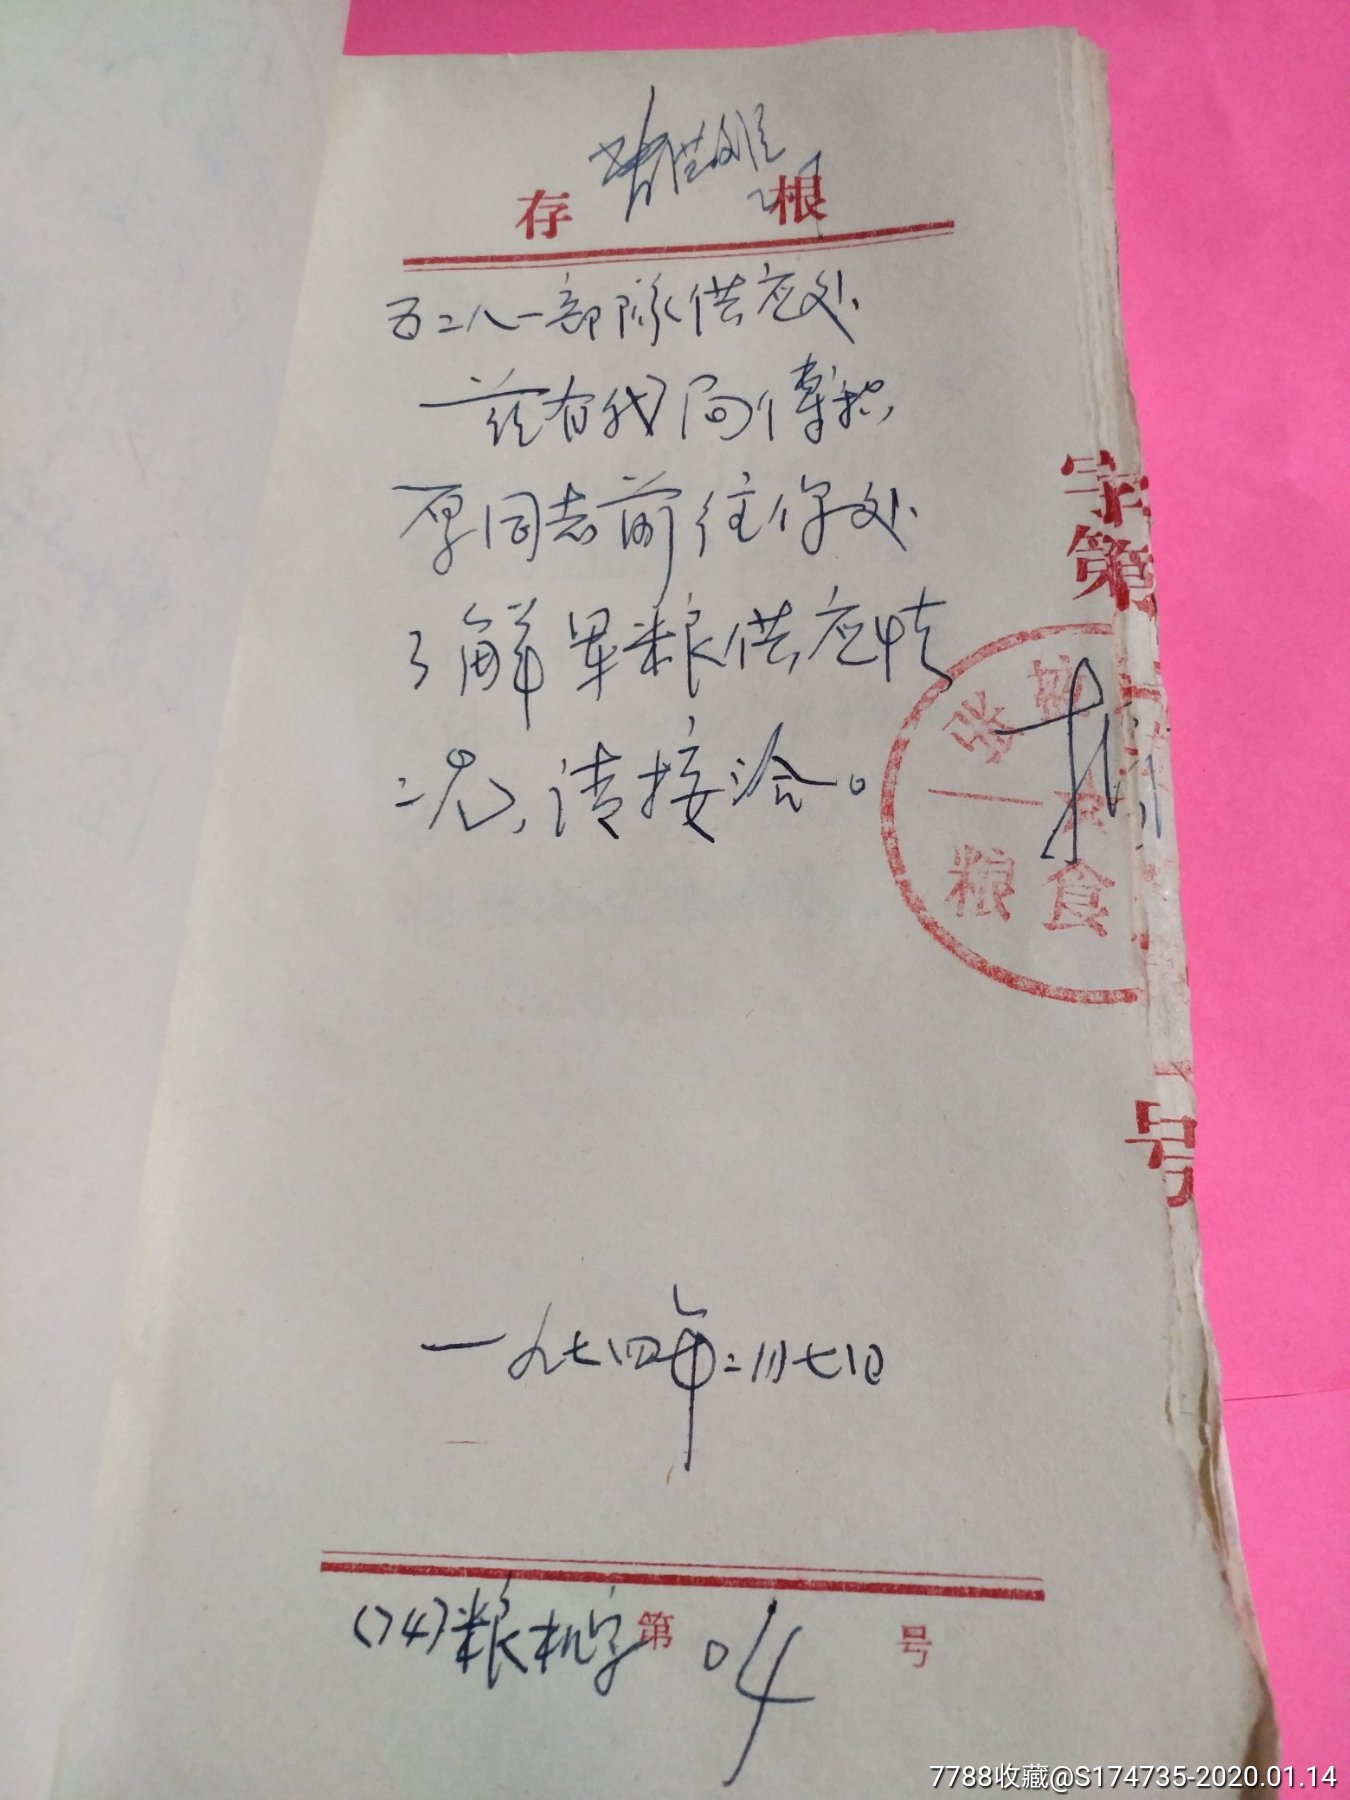 存 根
五二八一部队供应处
兹有我局傅积
厚同志前往你处
了解军粮供应情
况,请接洽。
字第
张掖
粮食
号
一九七四年二月七日
(74)粮机字第 04 号
7788收藏@S174735-2020.01.14